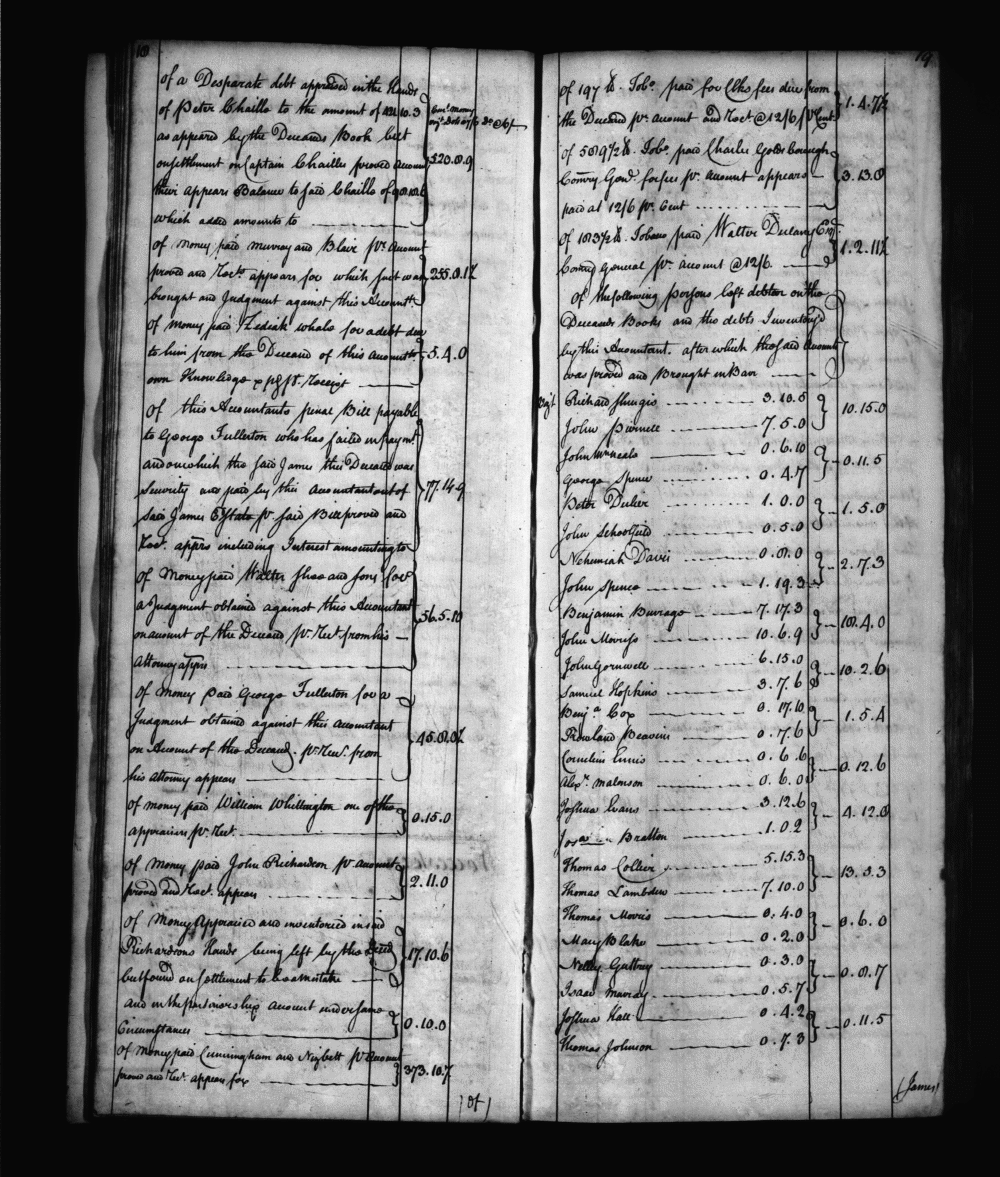 18
of a Desparate debt appraised in the Hands
of Peter Chaille to the amount of
as appeared by the Deceaseds Book but
on settlement on Captain Chailles proved Account
their appears Ballance to said Chaille of
which added amounts to
520.8.9
of Money paid Murray and Blair pr. Account
proved and Rect. appears for which suit was
brought and Judgment against this Accountt.
255.0.1½
of money paid Zediah Whale for a debt due
to him from the Deceasd of this Accountts.
own Knowledge & Receipt
5.4.0
of this Accountants penal Bill payable
to George Fullerton who has failed in paymt.
and on which the said James this Deceasd was
security and paid by this Accountant out of
said James Estate pr. said Bill proved and
Rect. appears including Interest amounting to
77.14.9
of Money paid Walter and sons for
a Judgment obtained against this Accountant
on account of the Deceasd pr. Rect. from his
Attorney appears
56.5.10
of money paid George Fullerton for a
Judgment obtained against this Accountant
on Account of the Deceasd. pr. Rect. from
his Attorny appears
45.0.0½
of money paid William Whittington one of the
appraisers pr. Rect.
0.15.0
of money paid John Richardson pr. Account
proved and Rect. appears
2.11.0
of Money Appraised and inventoried in said
Richardsons Hands being left by the Deced
but found on settlement to be a mistake
17.10.6
and in the partnership Account under same
Circumstances
0.10.0
of Money paid Cunningham and Nizbett pr. Account
proved and Rect. appears for
373.10.7
(of)
19
of 197 lb. Tobo. paid for Clks fees due from
the Deceasd pr. Account and Rect. @ 12/6 pr. Cent.
1.4.7½
of 589½ lb. Tobo. paid Charles Goldsborough
Comry Genl. for fees pr. Account appears
paid at 12/6 pr. Cent
3.13.8
of 183½ lb. Tobacco paid Walter Dulany Esqr.
Comry General pr. Account @ 12/6.
1.2.11½
of the following persons left debtor on the
Deceaseds Books and the debts Inventory'd
by this Accountant. after which the said Accounts
was proved and Brought in Barr
Richard Sturgis 3.10.5
John Purnell 7.5.0
10.15.0
John McNeale 0.6.10
George Spence 0.4.7
0.11.5
Peter Dulier 1.0.0
John Schoolfield 0.5.0
1.5.0
Nehemiah Davis 0.8.0
John Spence 1.19.3
2.7.3
Benjamin Burrage 7.17.3
John Morriss 10.6.9
18.4.0
John Gornwell 6.15.0
Samuel Hopkins 3.7.6
10.2.6
Benja. Cox 0.17.10
Rowland Beavins 0.7.6
1.5.4
Cornelius Ennis 0.6.6
Alexr. Malnson 0.6.0
0.12.6
Joshua Evans 3.12.6
Bratten 1.0.2
4.12.8
Thomas Collier 5.15.3
Thomas Lambden 7.10.0
13.5.3
Thomas Morris 0.4.0
Mary Blake 0.2.0
0.6.0
Nelly Guttrey 0.3.0
Isaac Murray 0.5.7
0.8.7
Joshua Hall 0.4.2
Thomas Johnson 0.7.3
0.11.5
(James)